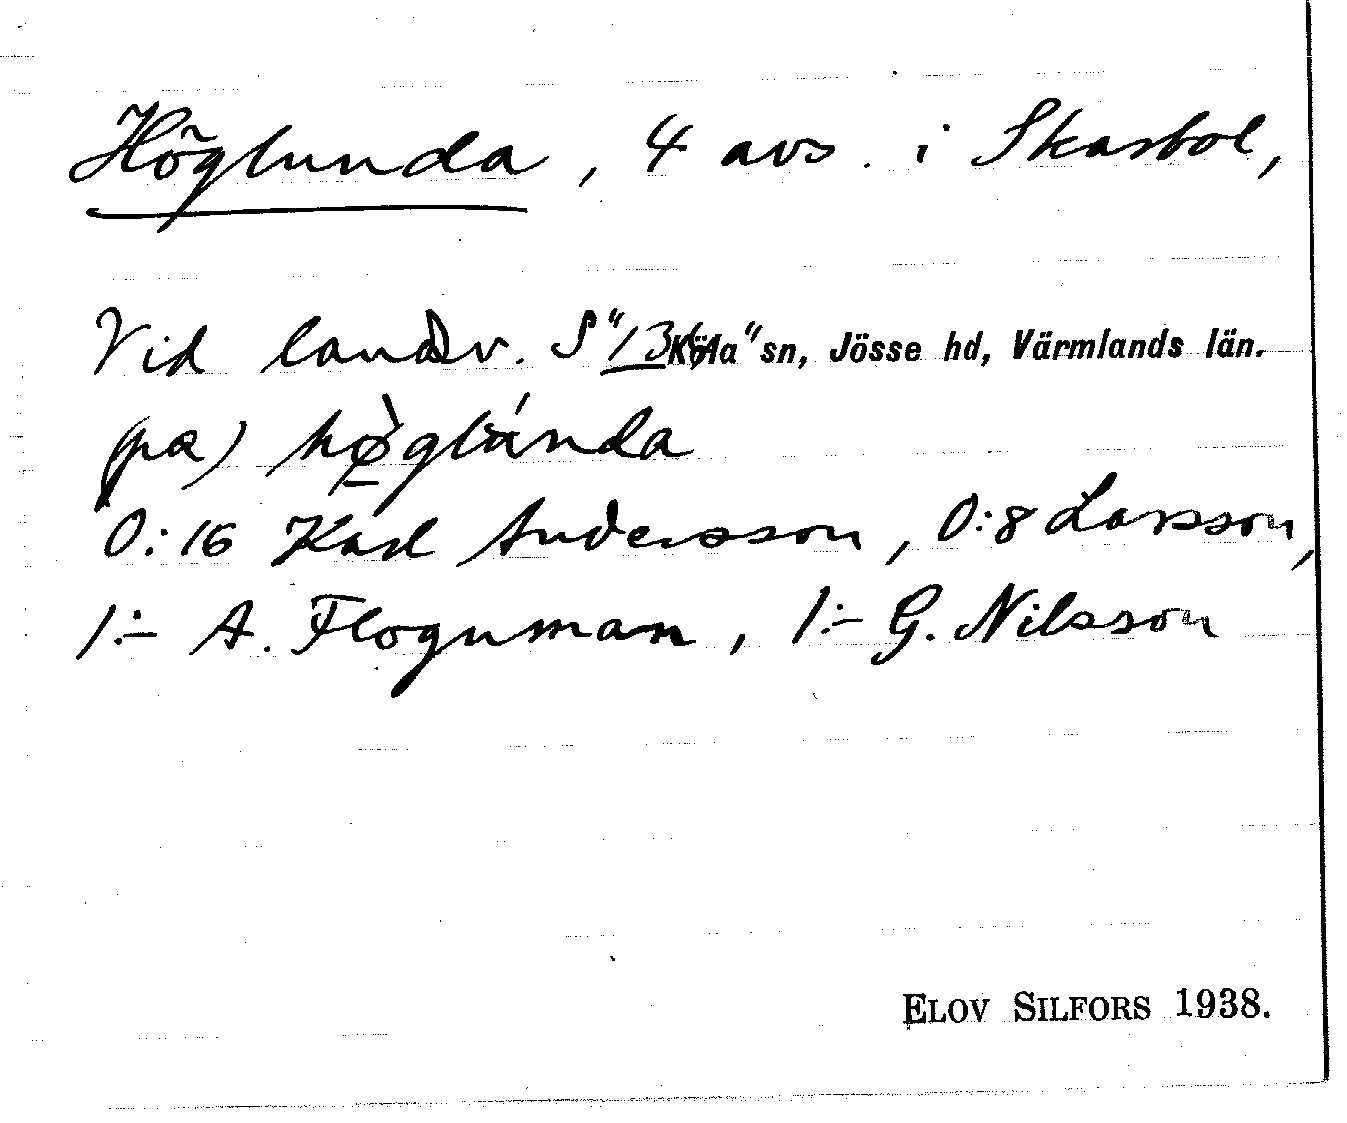 Höglunda, 4 avs. i Skarbol,
Vid landsv. S "13 Köla" sn, Jösse hd, Värmlands län.
(pa) hø̀glánda
0:16 Karl Andersson, 0:8 Larsson,
1:- A. Flognman, 1:- G. Nilsson
ELOV SILFORS 1938.